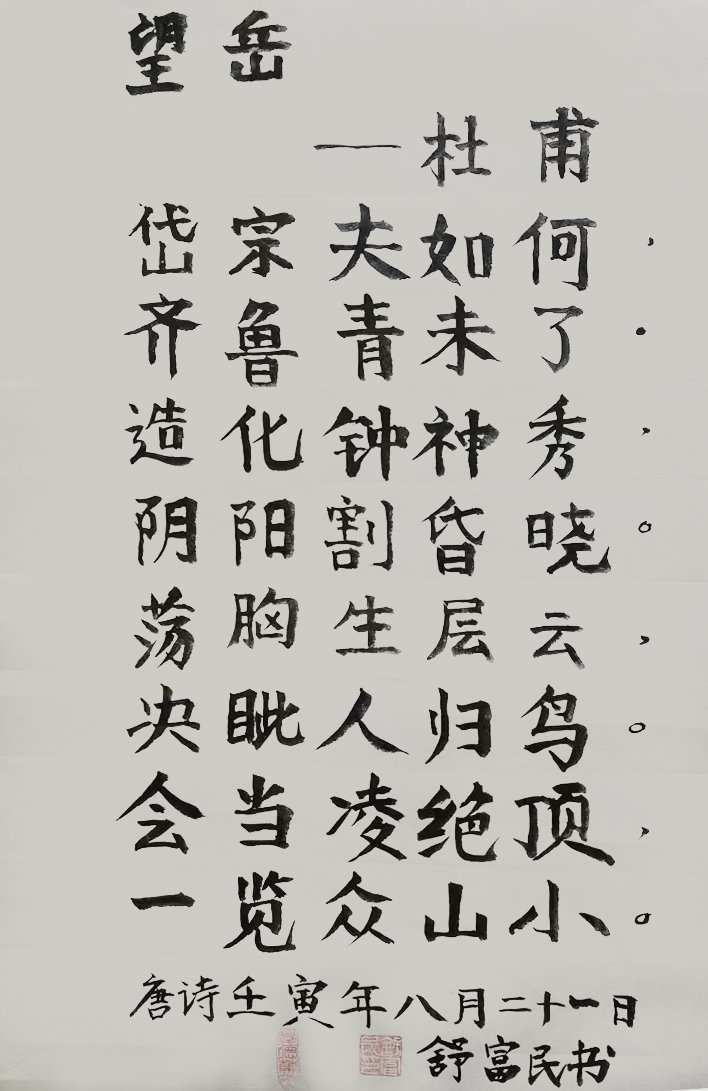 望岳
—杜甫
岱宗夫如何，
齐鲁青未了。
造化钟神秀，
阴阳割昏晓。
荡胸生层云，
决眦归鸟。
会当凌绝顶，
一览众山小。
唐诗壬寅年八月二十一日
舒富民书